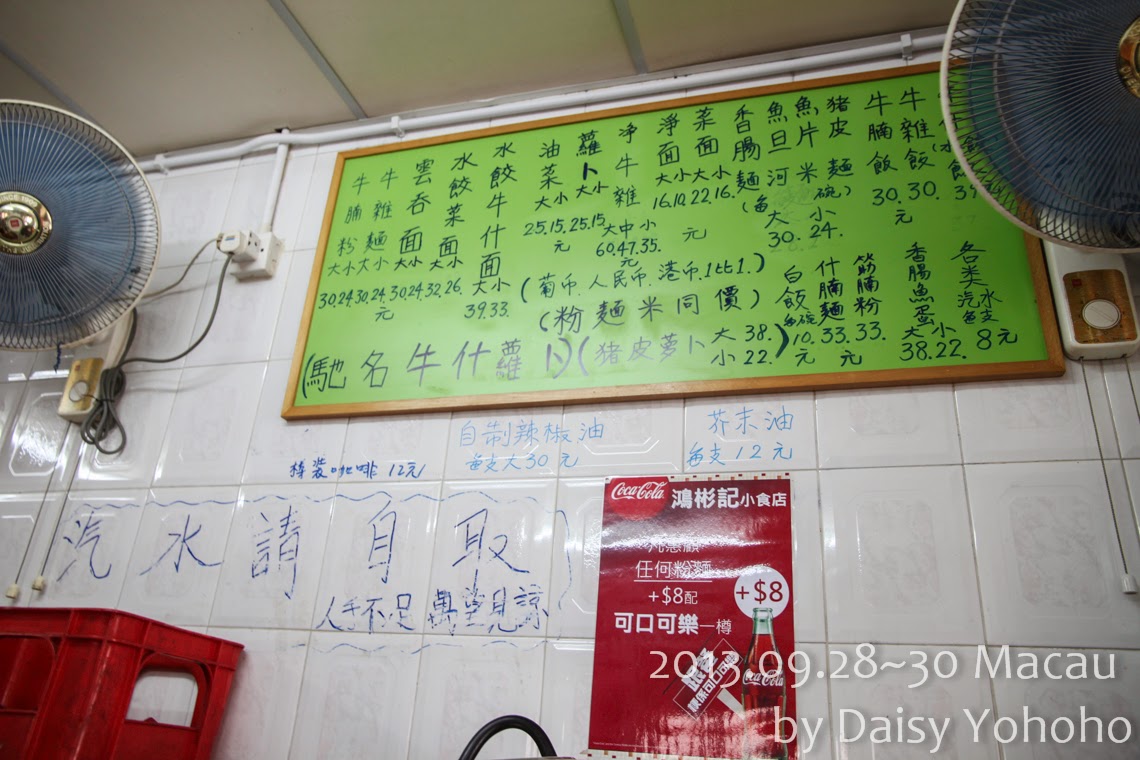 牛腩粉 大小 30.24.
牛雜麵 大小 30.24. 元
雲吞面 大小 30.24.
水餃菜面 大小 32.26.
水餃牛什面 大小 39.33.
油菜 大小 25.15. 元
蘿卜 大小 25.15
淨牛雜 大中小 60.47.35. 元
淨面 大小
菜面 大小 22.16.
元
香腸麵
魚旦河
魚片米
豬皮麵
大小
30.24.
牛腩飯 30. 元
牛雜飯 30.
(葡币.人民币.港币.1比1.)
(粉麵米同價)
白飯 10. 元
什腩麵 33.
筋腩粉 33. 元
香腸魚蛋 大小 38.22.
各类汽水 8元
(馳名牛什蘿卜)(豬皮萝卜 大 38. 小 22.)
自制辣椒油
每支大30元
芥末油
每支12元
樽装咖啡 12元
汽水請自取
人手不足 萬望見諒
Coca-Cola 鴻彬記小食店
凡惠顧
任何粉麵
+$8配
可口可樂一樽
+$8
Coca-Cola
2013.09.28~30 Macau
by Daisy Yohoho